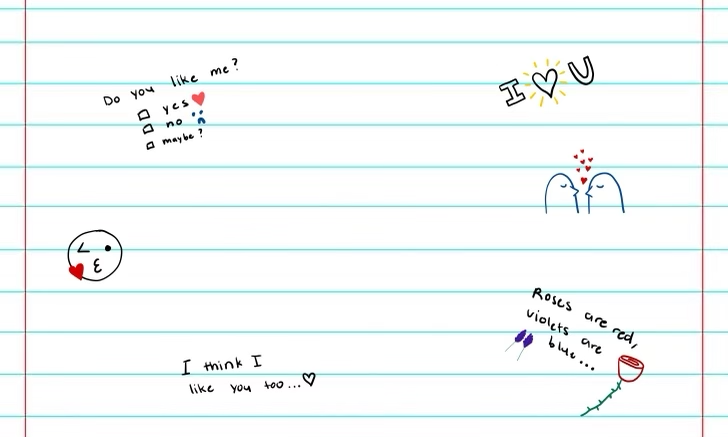 Do you like me?
yes
no
maybe?
I ♡ U
Roses are red,
violets are
blue...
I think I
like you too...♡